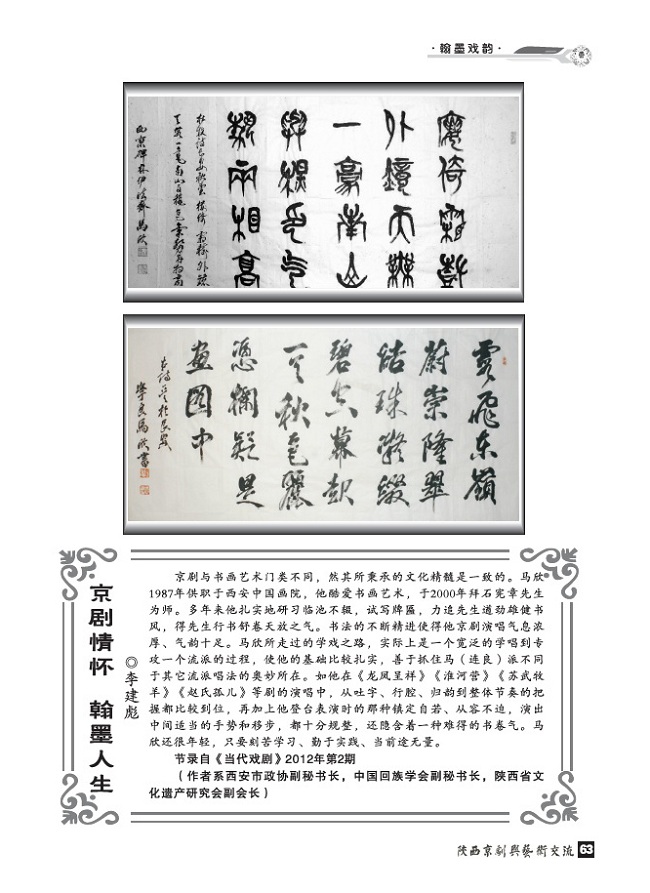 ·翰墨戏韵·
樓倚霜樹
外鏡天無
一豪南山
與秋色气
勢兩相高
東嶺
蔚崇隆翠
珠
碧
秋色麗
憑欄疑是
畫圖中
馬欣書
京剧情怀 翰墨人生
◎李建彪
京剧与书画艺术门类不同，然其所秉承的文化精髓是一致的。马欣
1987年供职于西安中国画院，他酷爱书画艺术，于2000年拜石宪章先生
为师。多年来他扎实地研习临池不辍，试写牌匾，力追先生遒劲雄健书
风，得先生行书舒卷天放之气。书法的不断精进使得他京剧演唱气息浓
厚、气韵十足。马欣所走过的学戏之路，实际上是一个宽泛的学唱到专
攻一个流派的过程，使他的基础比较扎实，善于抓住马（连良）派不同
于其它流派唱法的奥妙所在。如他在《龙凤呈祥》《淮河营》《苏武牧
羊》《赵氏孤儿》等剧的演唱中，从吐字、行腔、归韵到整体节奏的把
握都比较到位，再加上他登台表演时的那种镇定自若、从容不迫，演出
中间适当的手势和移步，都十分规整，还隐含着一种难得的书卷气。马
欣还很年轻，只要刻苦学习、勤于实践、当前途无量。
节录自《当代戏剧》2012年第2期
（作者系西安市政协副秘书长，中国回族学会副秘书长，陕西省文
化遗产研究会副会长）
陕西京剧與藝術交流 63